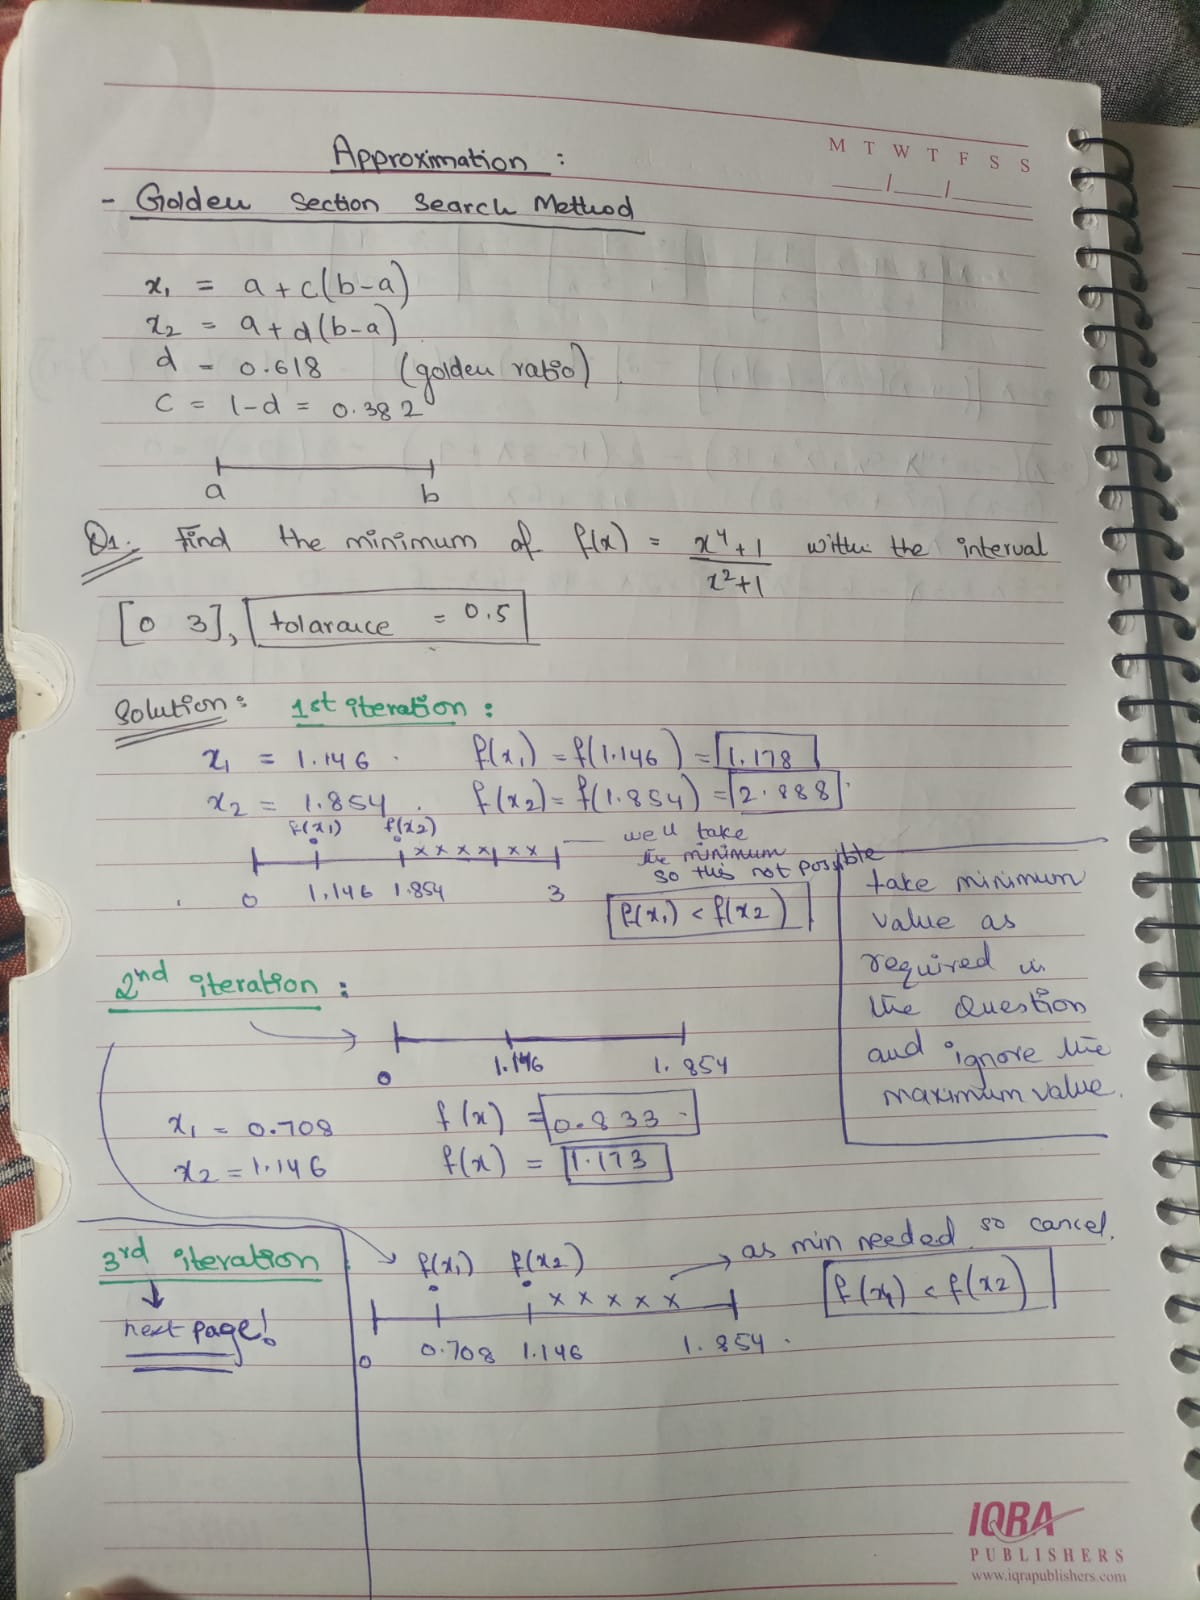 M T W T F S S
Approximation :
- Golden Section Search Method
x₁ = a + c(b-a)
x₂ = a + d(b-a)
d = 0.618 (golden ratio)
c = 1-d = 0.382
a b
Q1. Find the minimum of f(x) = x⁴+1 / x²+1 within the interval
[0 3], tolarance = 0.5
Solution: 1st iteration :
x₁ = 1.146 . f(x₁) = f(1.146) = 1.178
x₂ = 1.854 . f(x₂) = f(1.854) = 2.888
f(x₁) f(x₂)
x x x x x x
we'll take
the minimum
so this not possible
0 1.146 1.854 3
f(x₁) < f(x₂)
take minimum
value as
required in
the Question
and ignore the
maximum value.
2nd iteration :
0 1.146 1.854
x₁ = 0.708 f(x) = 0.833
x₂ = 1.146 f(x) = 1.173
3rd iteration
next page!
f(x₁) f(x₂)
x x x x x
as min needed so cancel.
f(x₁) < f(x₂)
0 0.708 1.146 1.854 .
IQRA
PUBLISHERS
www.iqrapublishers.com